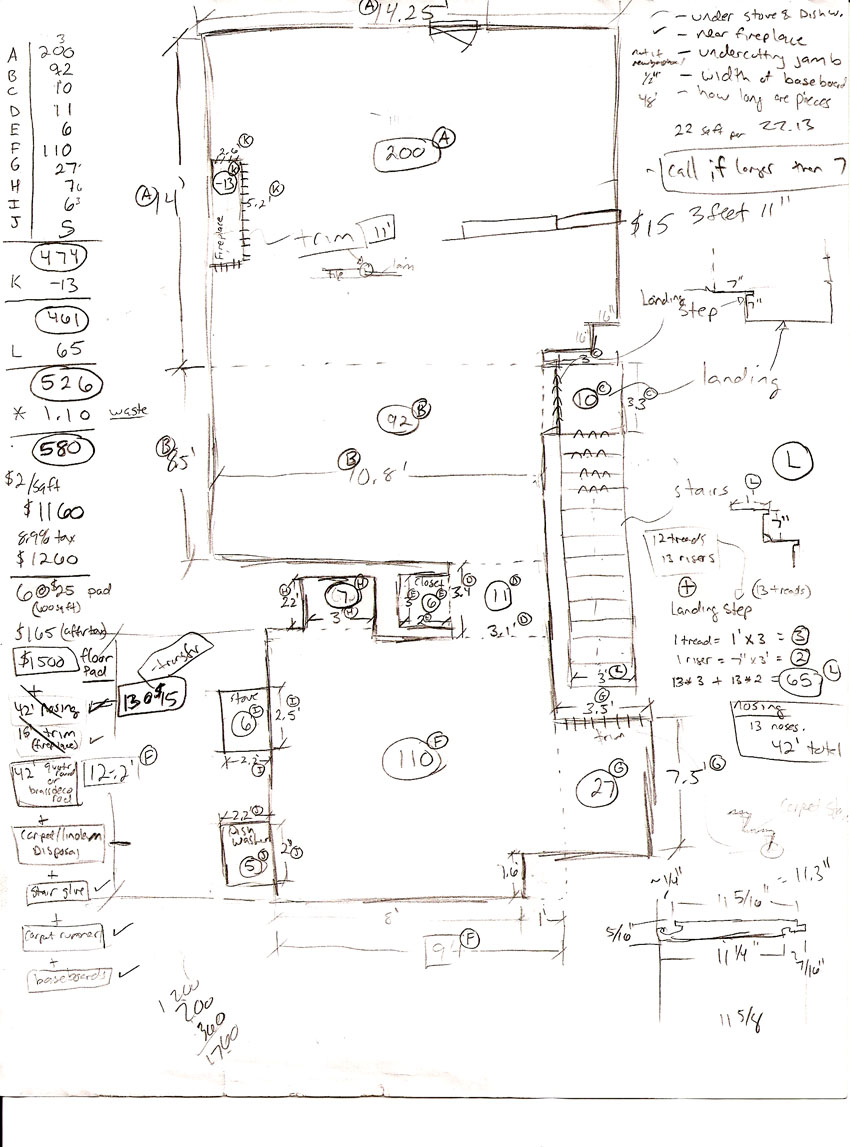 A 200
B 92
C 10
D 11
E 6
F 110
G 27
H 7
I 6
J 5
474
K -13
461
L 65
526
* 1.10 waste
580
$2/sqft
$1160
8.9% tax
$1260
6@$25 pad
(100sqft)
$165 (after tax)
$1500 floor
Pad
+
42' nosing
13@$15
-transfer
18' trim
(fireplace)
42' quarter
round
or
+
Carpet/linoleum
Disposal
+
Stair glue
+
Carpet runner
+
baseboards
1200
200
360
1760
A 14.25'
A 14'
200 A
2.6' K
-13 K
5.2' K
Fireplace
trim 11'
tile
16"
16"
3' C
10 C
3.3' C
92 B
B 8.5'
B 10.8'
H 2.2'
7 H
3' H
closet
3' E
6 E
2' E
3.4' D
11 D
3.1' D
stove
6 I
2.5' I
2.2' I
110 F
12.2' F
2.2' J
Dish
Washer
5 J
2' J
8'
1'
1.6'
9' F
3' L
G
3.5'
trim
27 G
7.5' G
- under stove & Dishw.
✓ - near fireplace
- undercutting jamb
1/2" - width of baseboard
48' - how long are pieces
22 sqft per 22.13
call if larger than 7
$15 3 feet 11"
Landing
Step
7"
7"
landing
stairs
L
L
1'
7"
12 treads
13 risers
+
(13 treads)
Landing Step
1 tread = 1' x 3 = 3
1 riser = 7" x 3' = 2
13*3 + 13*2 = 65 L
nosing
13 noses.
42' total
~1/4"
11 5/16" ~ 11.3"
5/16"
11 1/4"
7/16"
11 5/8